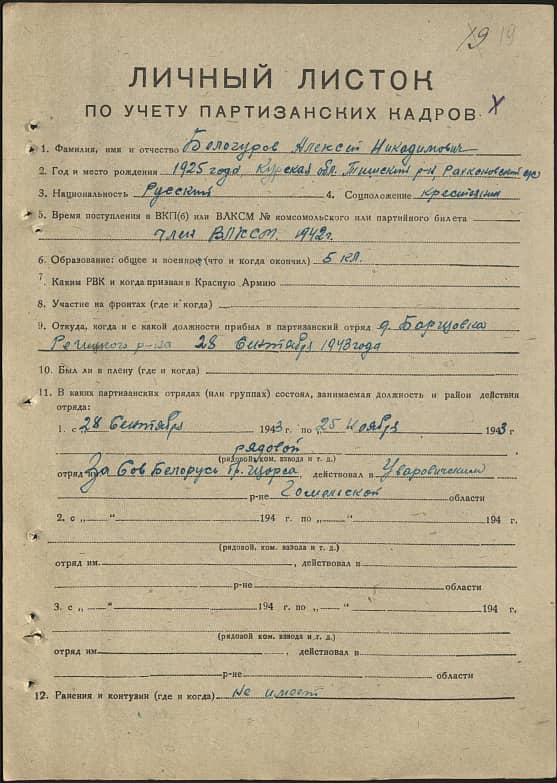 19 19
ЛИЧНЫЙ ЛИСТОК
ПО УЧЕТУ ПАРТИЗАНСКИХ КАДРОВ
1. Фамилия, имя и отчество Белогуров Алексей Никодимович
2. Год и место рождения 1925 года, Курская обл. Тимский р-н,
3. Национальность Русский 4. Соцположение крестьянин
5. Время поступления в ВКП(б) или ВЛКСМ № комсомольского или партийного билета
член ВЛКСМ. 1942г.
6. Образование: общее и военное (что и когда окончил) 5 кл.
7. Каким РВК и когда призван в Красную Армию
8. Участие на фронтах (где и когда)
9. Откуда, когда и с какой должности прибыл в партизанский отряд д. Борщовка
Речицкого р-на 28 Сентября 1943 года
10. Был ли в плену (где и когда)
11. В каких партизанских отрядах (или группах) состоял, занимаемая должность и район действия
отряда:
1. с 28 Сентября 1943 г. по „25 Ноября 1943 г
рядовой
(рядовой, ком. взвода и т. д.)
отряд им За Сов Белорусь бр. Щорса, действовал в Уваровичским
р-не Гомельской области
2. с „ “ 194 г. по „ “ 194 г.
(рядовой, ком. взвода и т. д.)
отряд им. , действовал в
р-не области
3. с „ “ 194 г. по „ “ 194 г.
(рядовой, ком. взвода и т. д.)
отряд им , действовал в
р-не области
12. Ранения и контузии (где и когда) не имеет